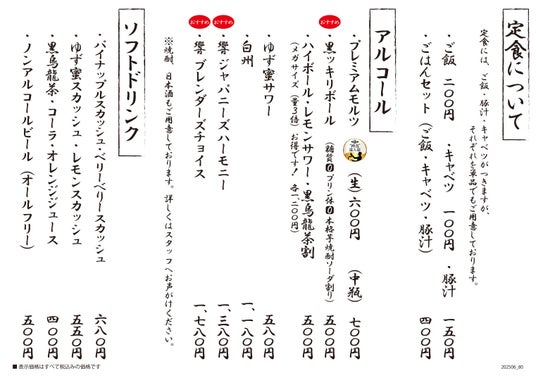 定食について
定食には、ご飯・豚汁・キャベツがつきますが、
それぞれを単品でもご用意しております。
・ご飯 二〇〇円 ・キャベツ 一〇〇円 ・豚汁 一五〇円
・ごはんセット(ご飯・キャベツ・豚汁) 四〇〇円
アルコール
・プレミアムモルツ (生) 六〇〇円 (中瓶) 七〇〇円
おすすめ
・黒ッキリボール (糖質0プリン体0本格芋焼酎ソーダ割り) 五〇〇円
・ハイボール・レモンサワー・黒烏龍茶割 五〇〇円
(メガサイズ(量3倍) お得です! 各一、二〇〇円)
・ゆず蜜サワー 五八〇円
・白州 一、一八〇円
おすすめ
・響 ジャパニーズハーモニー 一、三八〇円
おすすめ
・響 ブレンダーズチョイス 一、七八〇円
※焼酎、日本酒もご用意しております。詳しくはスタッフへお声がけください。
ソフトドリンク
・パイナップルスカッシュ・ベリーベリースカッシュ 六八〇円
・ゆず蜜スカッシュ・レモンスカッシュ 五五〇円
・黒烏龍茶・コーラ・オレンジジュース 四〇〇円
・ノンアルコールビール(オールフリー) 五〇〇円
■表示価格はすべて税込みの価格です
202506_80